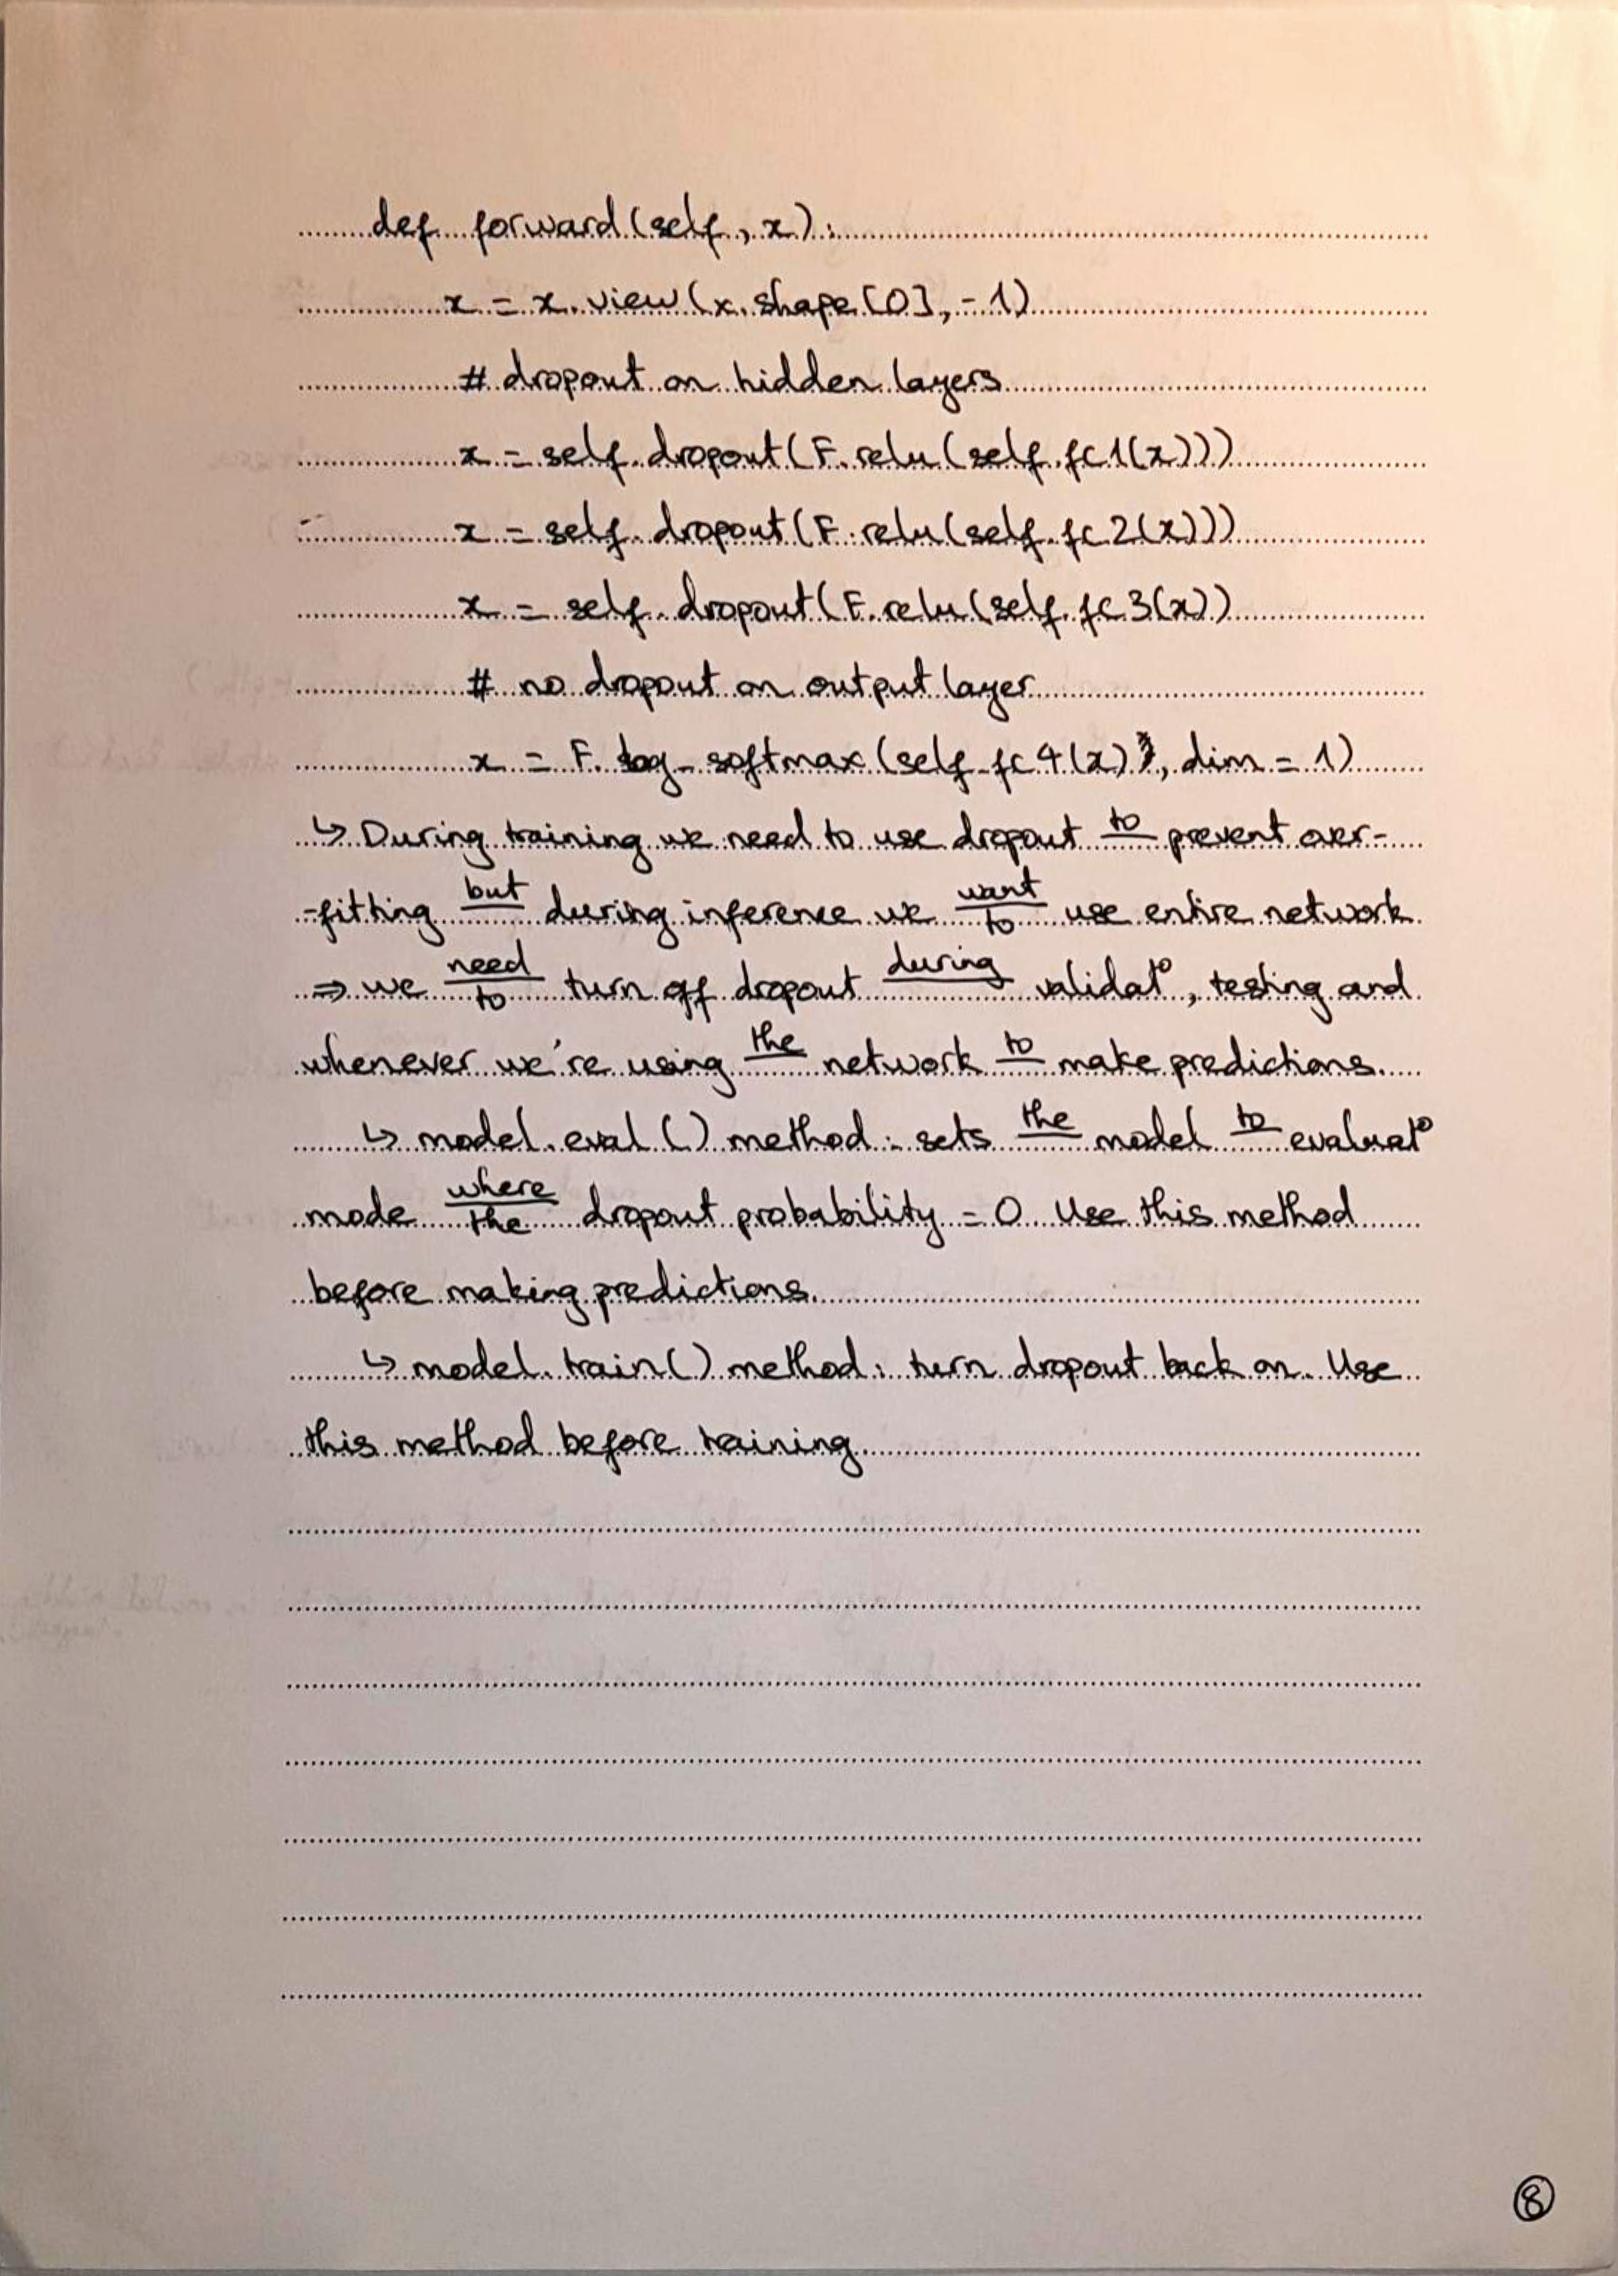 def forward(self, x):
x = x.view(x.shape[0], -1)
# dropout on hidden layers
x = self.dropout(F.relu(self.fc1(x)))
x = self.dropout(F.relu(self.fc2(x)))
x = self.dropout(F.relu(self.fc3(x))
# no dropout on output layer
x = F.log_softmax(self.fc4(x), dim = 1)
↳ During training we need to use dropout to prevent over-
-fitting but during inference we want to use entire network
⇒ we need to turn off dropout during validat°, testing and
whenever we're using the network to make predictions.
↳ model.eval() method: sets the model to evaluat°
mode where the dropout probability = 0. Use this method
before making predictions.
↳ model.train() method: turn dropout back on. Use
this method before training.
8